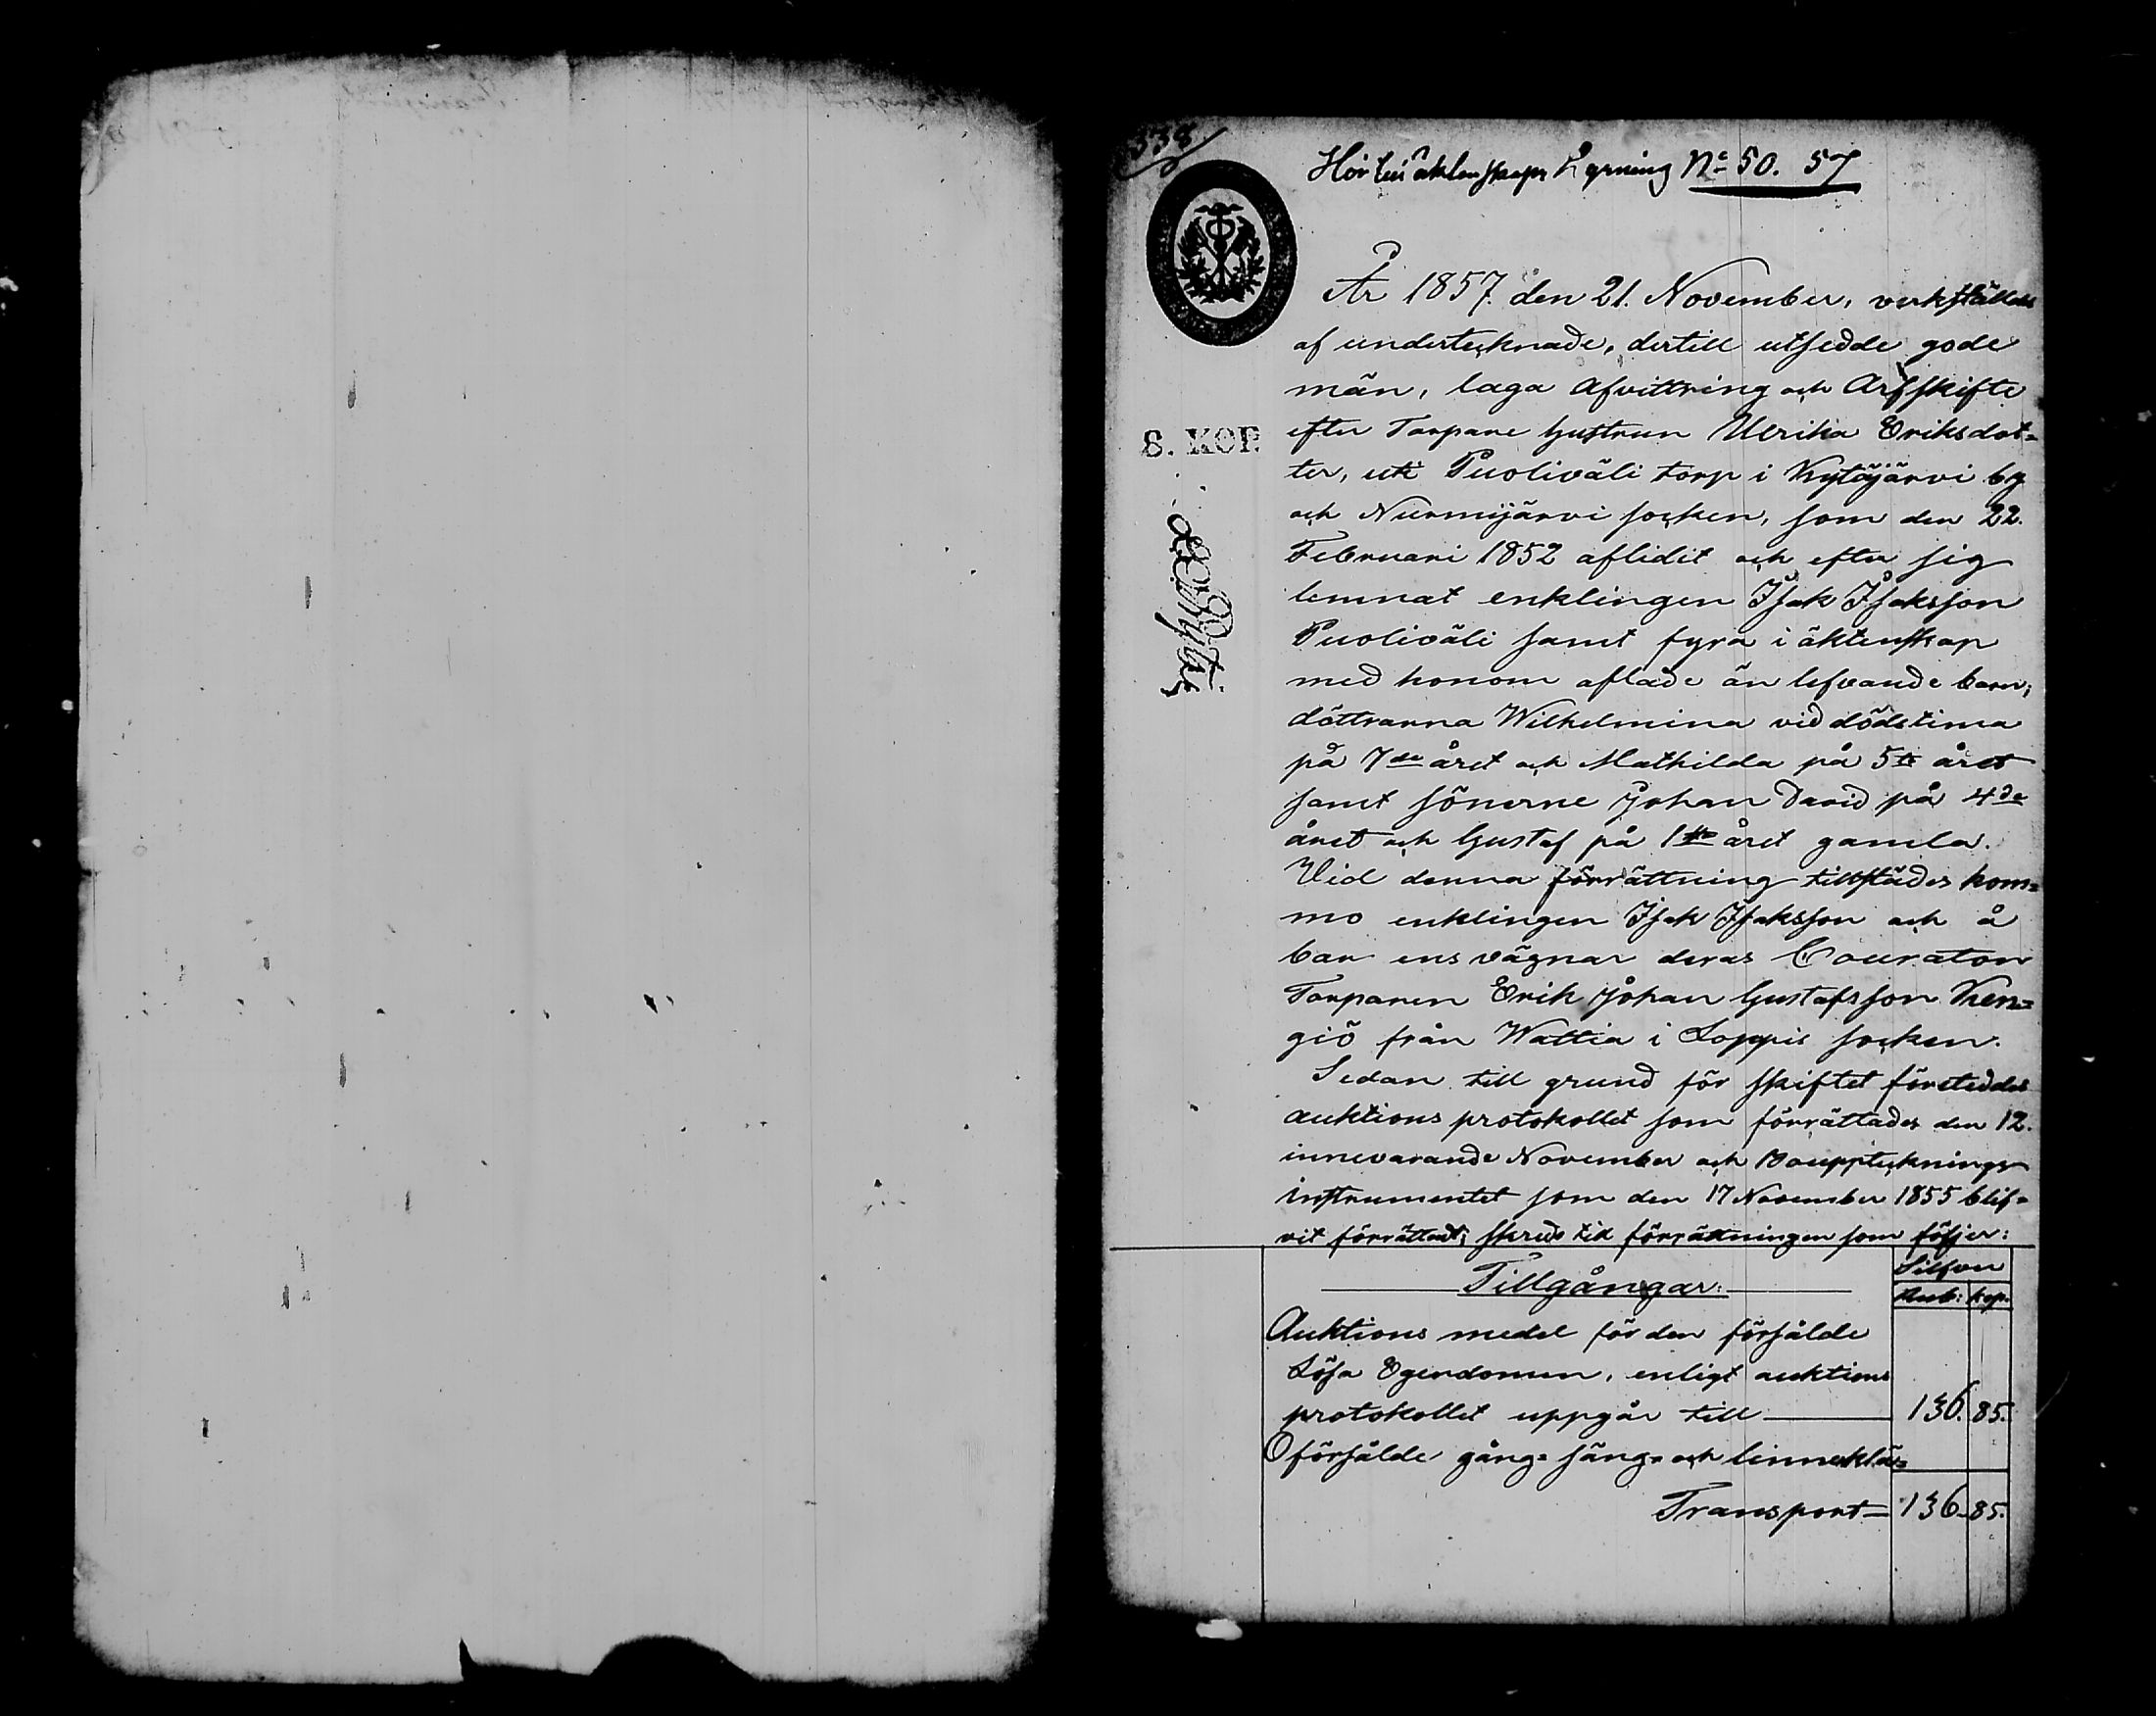 338
Hör till äktenskaps Lysning No 50. 57
År 1857. den 21. November, verkställdes
af undertecknade, dertill utsedde gode
män, laga Afvittring och Arfskifte
efter Torpare hustrun Ulrika Eriksdot=
ter, utå Puoliväli torp i Kytäjärvi by
och Nurmijärvi socken, som den 22.
Februari 1852 aflidit och efter sig
lemnat enklingen Isak Isaksson
Puoliväli samt fyra i äktenskap
med honom aflade än lefvande barn;
döttrarna Wilhelmina vid dödstima
på 7de året och Mathilda på 5te året
samt sönerne Johan David på 4de
året och Gustaf på 1sta året gamla.
Vid denna förrättning tillstädes kom=
mo enklingen Isak Isaksson och å
barnens vägnar deras Couratorn
Torparen Erik Johan Gustafsson Ken=
giö från Wattia i Loppis socken.
Sedan till grund för skiftet företeddes
auktions protokollet som förrättades den 12.
innevarande November och Bouppteknings
instrumentet som den 17 November 1855 blif=
vit förrättadt; skreds till förrättningen som följer:
8. KOP.
Silfver
Tillgångar:
Rub: kop.
Auktions medel för den försålde
Lösa Egendomen, enligt auktions
protokollet uppgår till 136. 85.
Oförsålde gång= säng= och linneklä=
Transport= 136. 85.